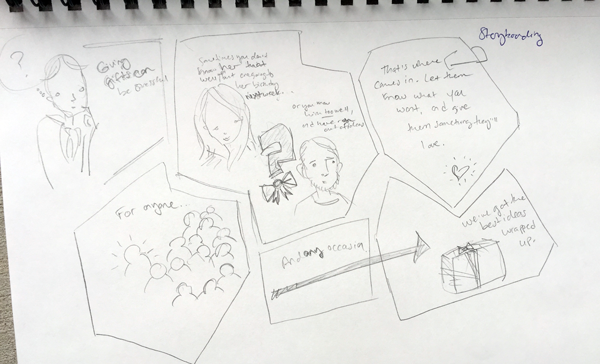 Storyboarding
?
Giving
gifts can
be stressful
Sometimes you don't
know her that
well, but are going to
her
next week...
or you
know him too well,
and have
out of ideas
?
That's where
comes in. Let them
know what you
want, and give
them something they'll
love.
For anyone...
And any occasion
we've got the
best ideas
wrapped
up.